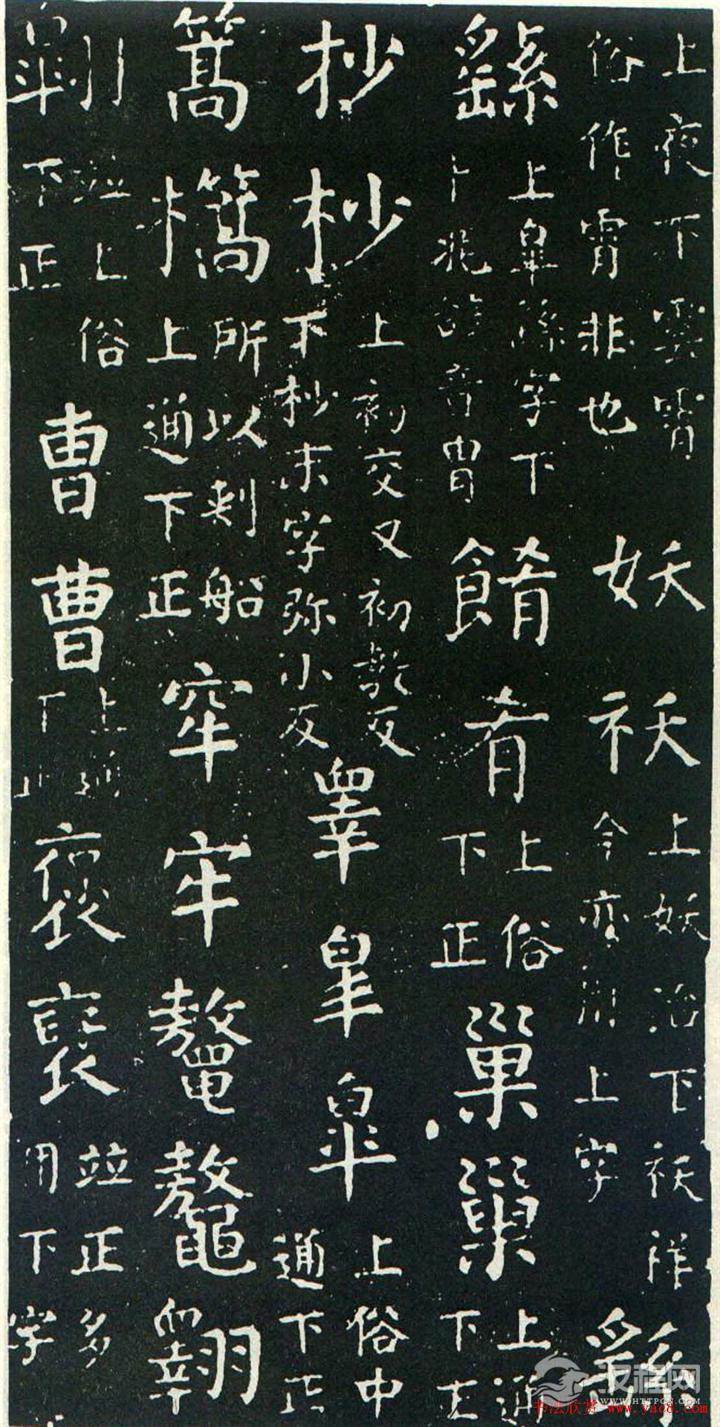 上夜下雲霄俗作霄非也妖祅上妖冶下祅祥今亦用上字繇
繇上皐繇字下卜兆辞音冑餚肴上俗下正巢巢上通下正
抄杪上初交又初教反下杪末字弥小反睾皐皋上俗中通下正
篙㰏所以刺船上通下正窂牢鼇鼇翶
翱上俗下正曺曹上通下正褒裒並正多用下字
汉程网
HTTPCN.COM
书法欣赏 www.yac8.com